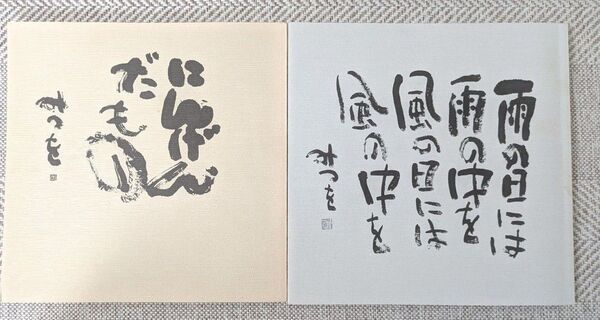 にんげん
だもの
みつを
雨の日には
雨の中を
風の日には
風の中を
みつを